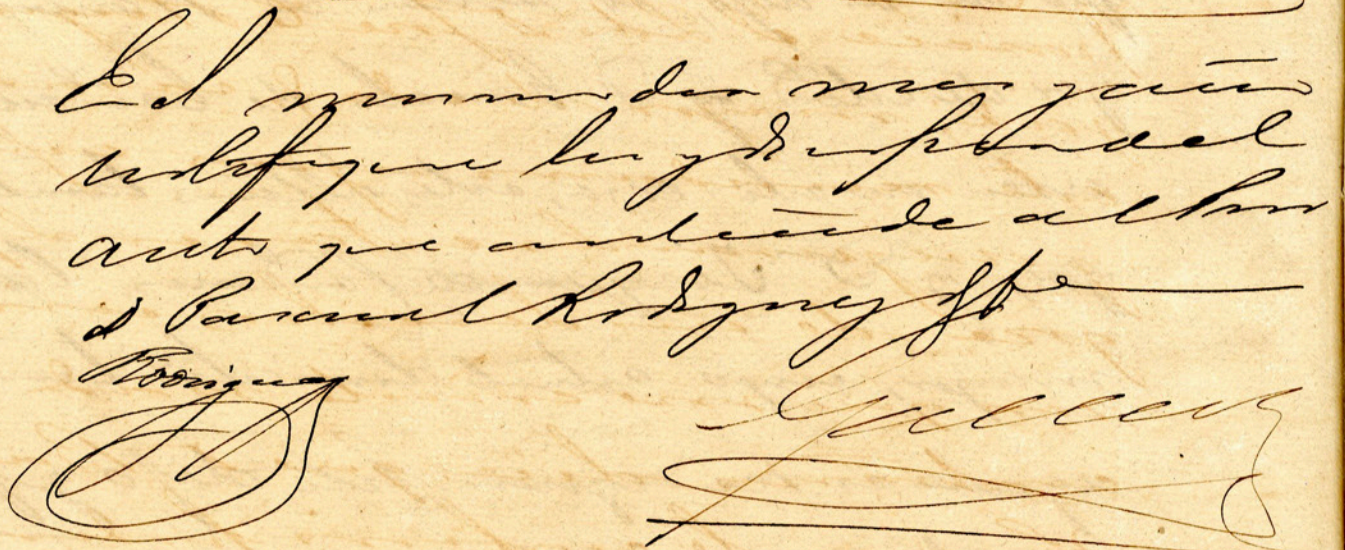 En el mismo dia mes y año
notifique ley y di copia del
auto que antecede al Pror
d Pascual Rodriguez doy fe
Rodriguez